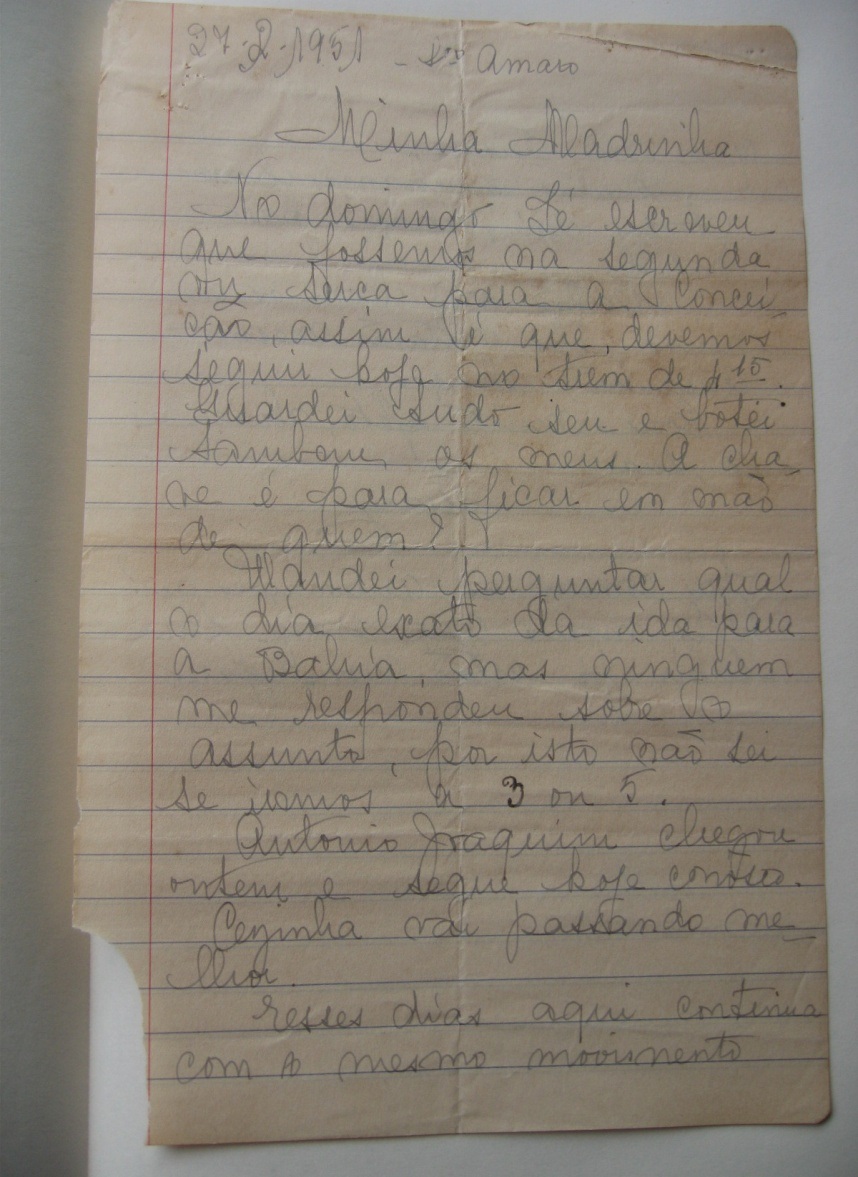 27-2-1951 - Sto Amaro
Minha Madrinha
No domingo Zé escreveu
que fossemos na segunda
ou terca para a Concei-
cão, assim é que, devemos
seguir hoje no trem de 4 15.
Guardei tudo seu e botei
tambem os meus. A cha-
ve é para ficar em mão
de quem?
Mandei perguntar qual
o dia exato da ida para
a Bahia, mas ninguem
me respondeu sobre o
assunto, por isto não sei
se iramos a 3 ou 5.
Antonio Joaquim chegou
ontem e segue hoje conosco.
Cezinha vai passando me-
lhor.
esses dias aqui continua
com o mesmo movimento